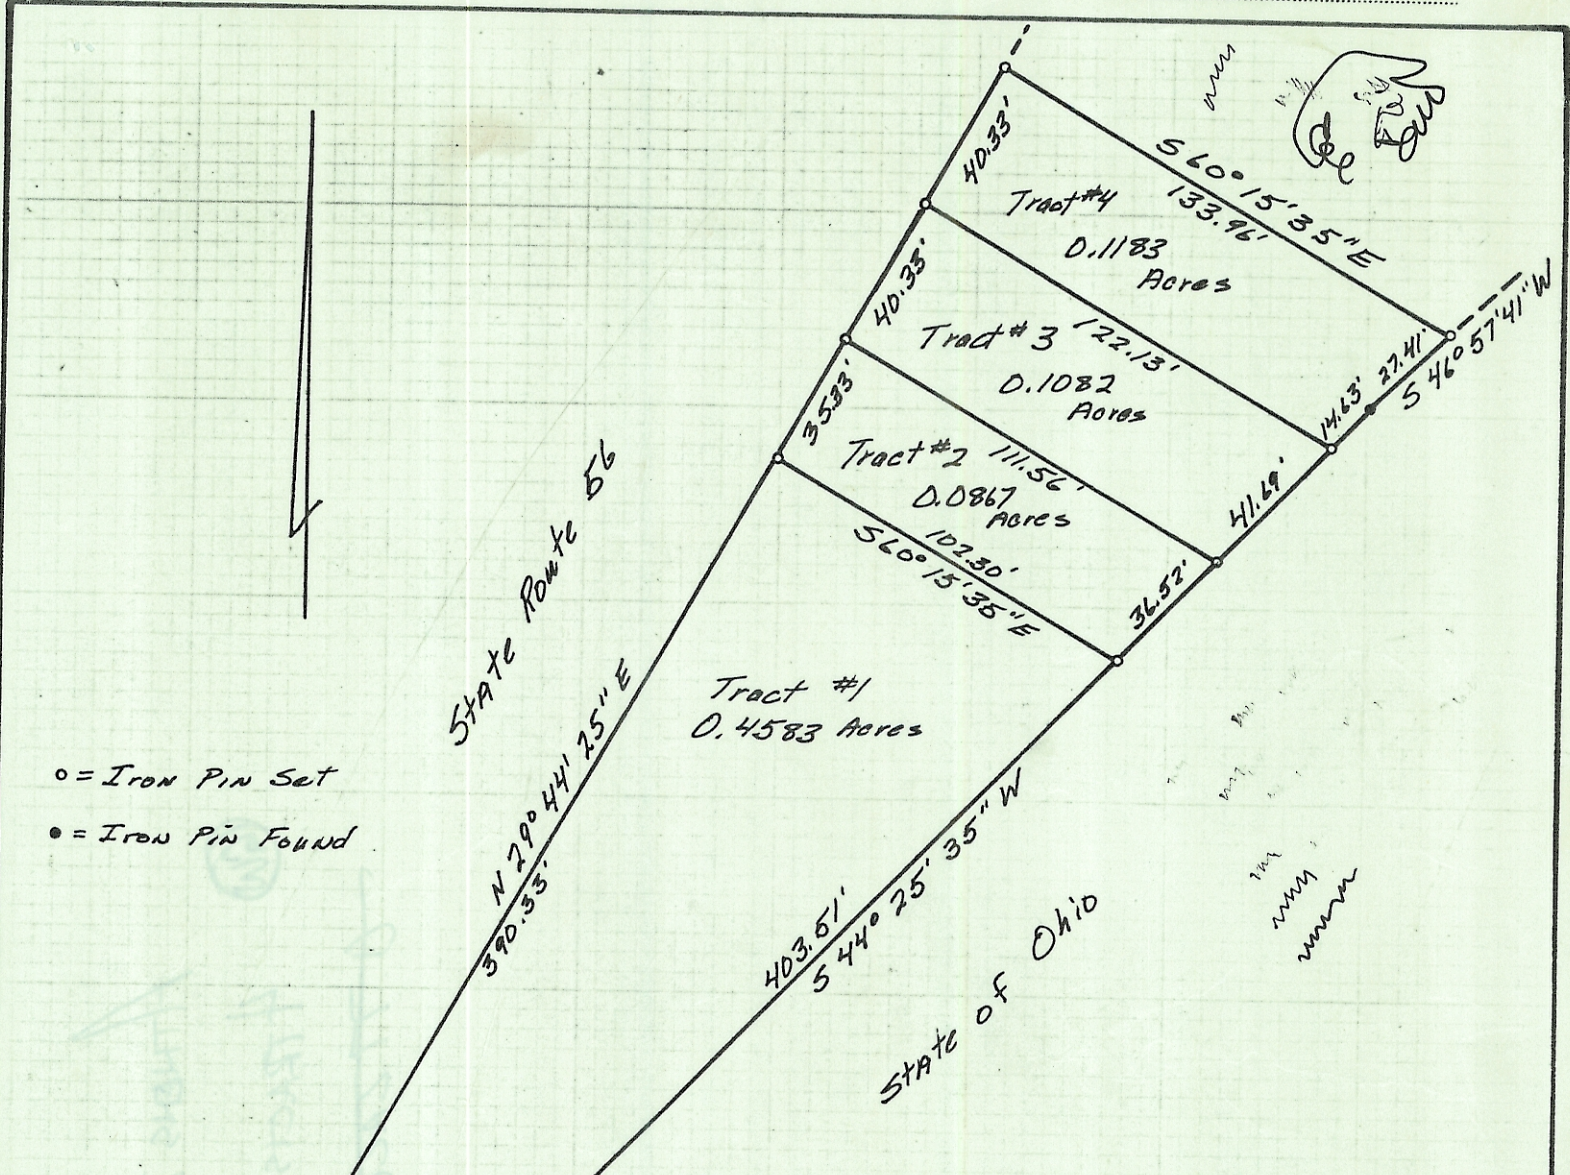 40.33'
S 60° 15' 35" E
133.96'
Tract #4
0.1183
Acres
40.33'
Tract # 3
122.13'
0.1082
Acres
27.41'
S 46° 57' 41" W
14.63'
35.33'
Tract #2
111.56'
0.0867
Acres
41.69'
102.30'
S 60° 15' 35" E
36.52'
State Route 56
Tract #1
0.4583 Acres
N 29° 44' 25" E
390.33'
403.51'
S 44° 25' 35" W
State of Ohio
o = Iron Pin Set
● = Iron Pin Found